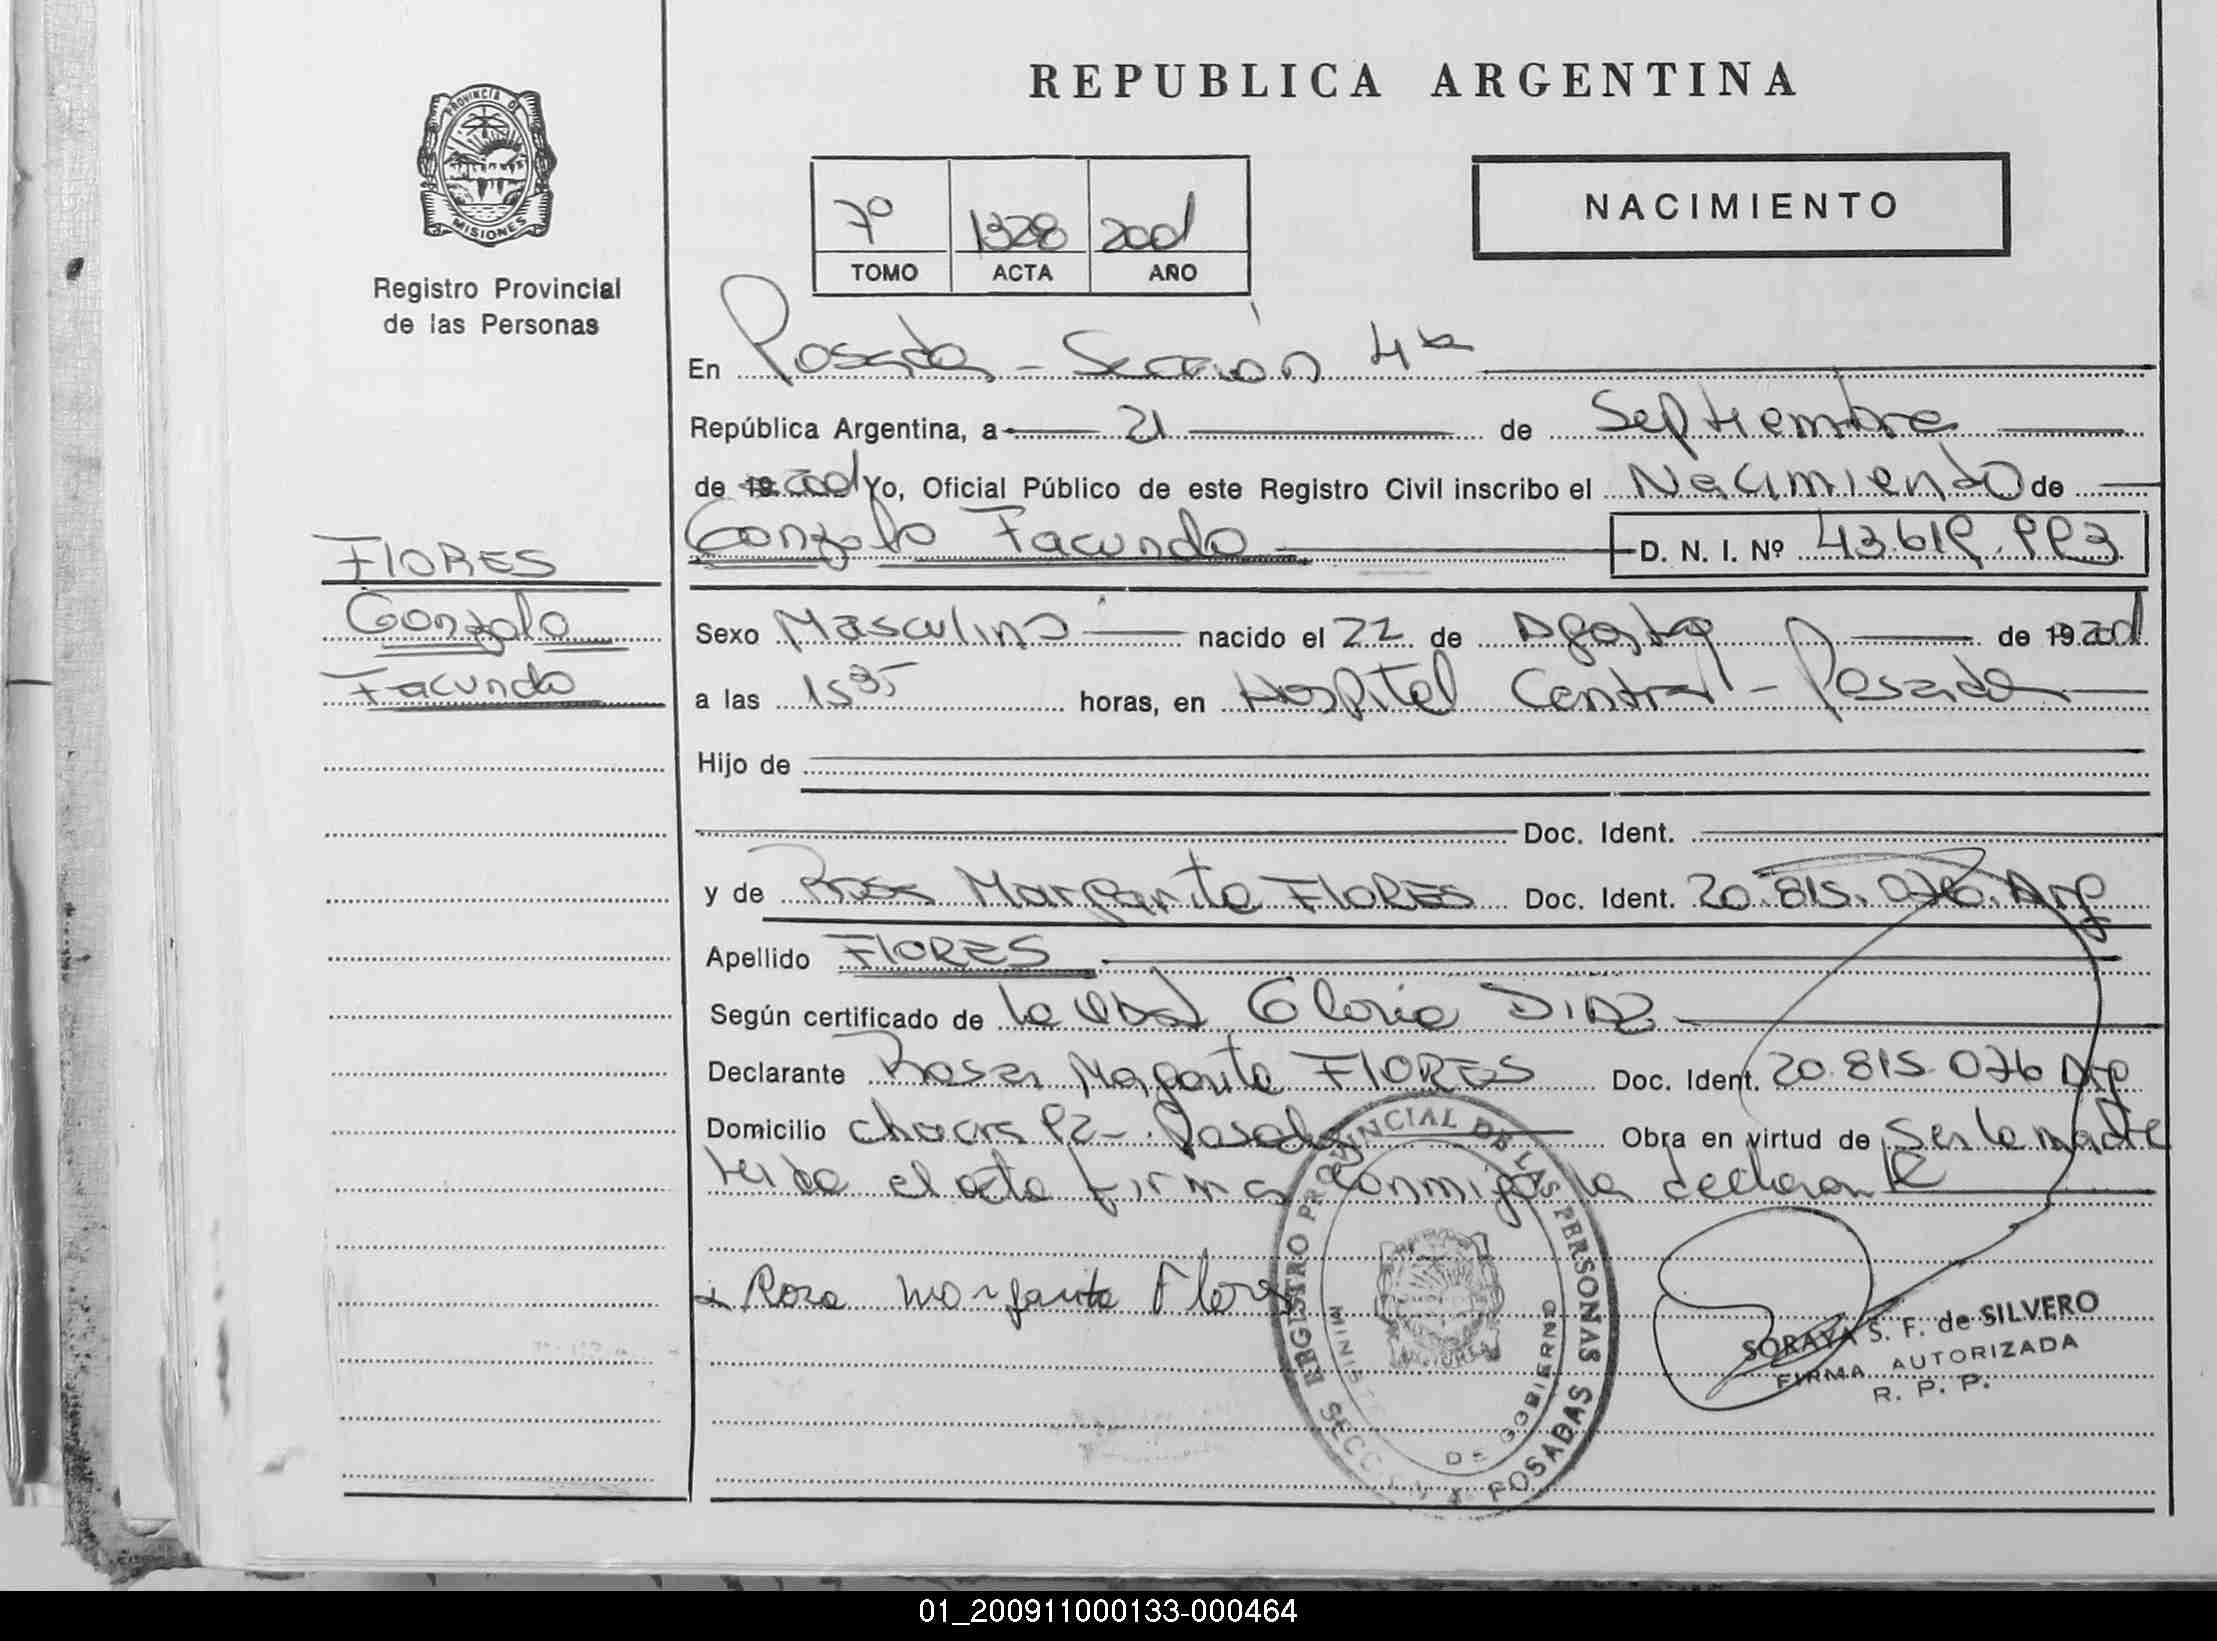 REPUBLICA ARGENTINA
PROVINCIA DE
MISIONES
Registro Provincial
de las Personas
7º 1328 2001
TOMO ACTA AÑO
NACIMIENTO
En Posadas - Sección 4ta
República Argentina, a 21 de Septiembre
de 19 2001 Yo, Oficial Público de este Registro Civil inscribo el Nacimiento de
Gonzalo Facundo D. N. I. Nº 43.619.993
FLORES
Gonzalo
Facundo
Sexo Masculino nacido el 22 de Agosto de 19 2001
a las 15 35 horas, en Hospital Central - Posadas
Hijo de
Doc. Ident.
y de Rosa Margarita FLORES Doc. Ident. 20.815.076. Arg
Apellido FLORES
Según certificado de la Obst Gloria DIAZ
Declarante Rosa Margarita FLORES Doc. Ident. 20.815.076 Arg
Domicilio chacra 92 - Posadas Obra en virtud de Ser la madre
leida el acta firma conmigo la declarante
x Rosa Margarita Flores
REGISTRO PROVINCIAL DE LAS PERSONAS
SECC. POSADAS
DE GOBIERNO
SORAYA S. F. de SILVERO
FIRMA AUTORIZADA
R. P. P.
01_200911000133-000464